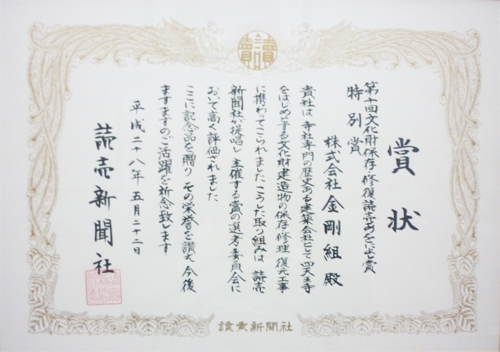 讀賣
賞状
第十回文化財保存・修復読売あをによし賞
特別賞
株式会社 金剛組 殿
貴社は 寺社専門の歴史ある建築会社として 四天王寺
をはじめとする文化財建造物の保存修理 復元工事
に携わってこられました こうした取り組みは 読売
新聞社が提唱し 主催する賞の選考委員会に
おいて高く評価されました
ここに記念品を贈り その栄誉を讃え 今後
ますますのご活躍を祈念致します
平成二十八年五月二十二日
読売新聞社
讀賣新聞社